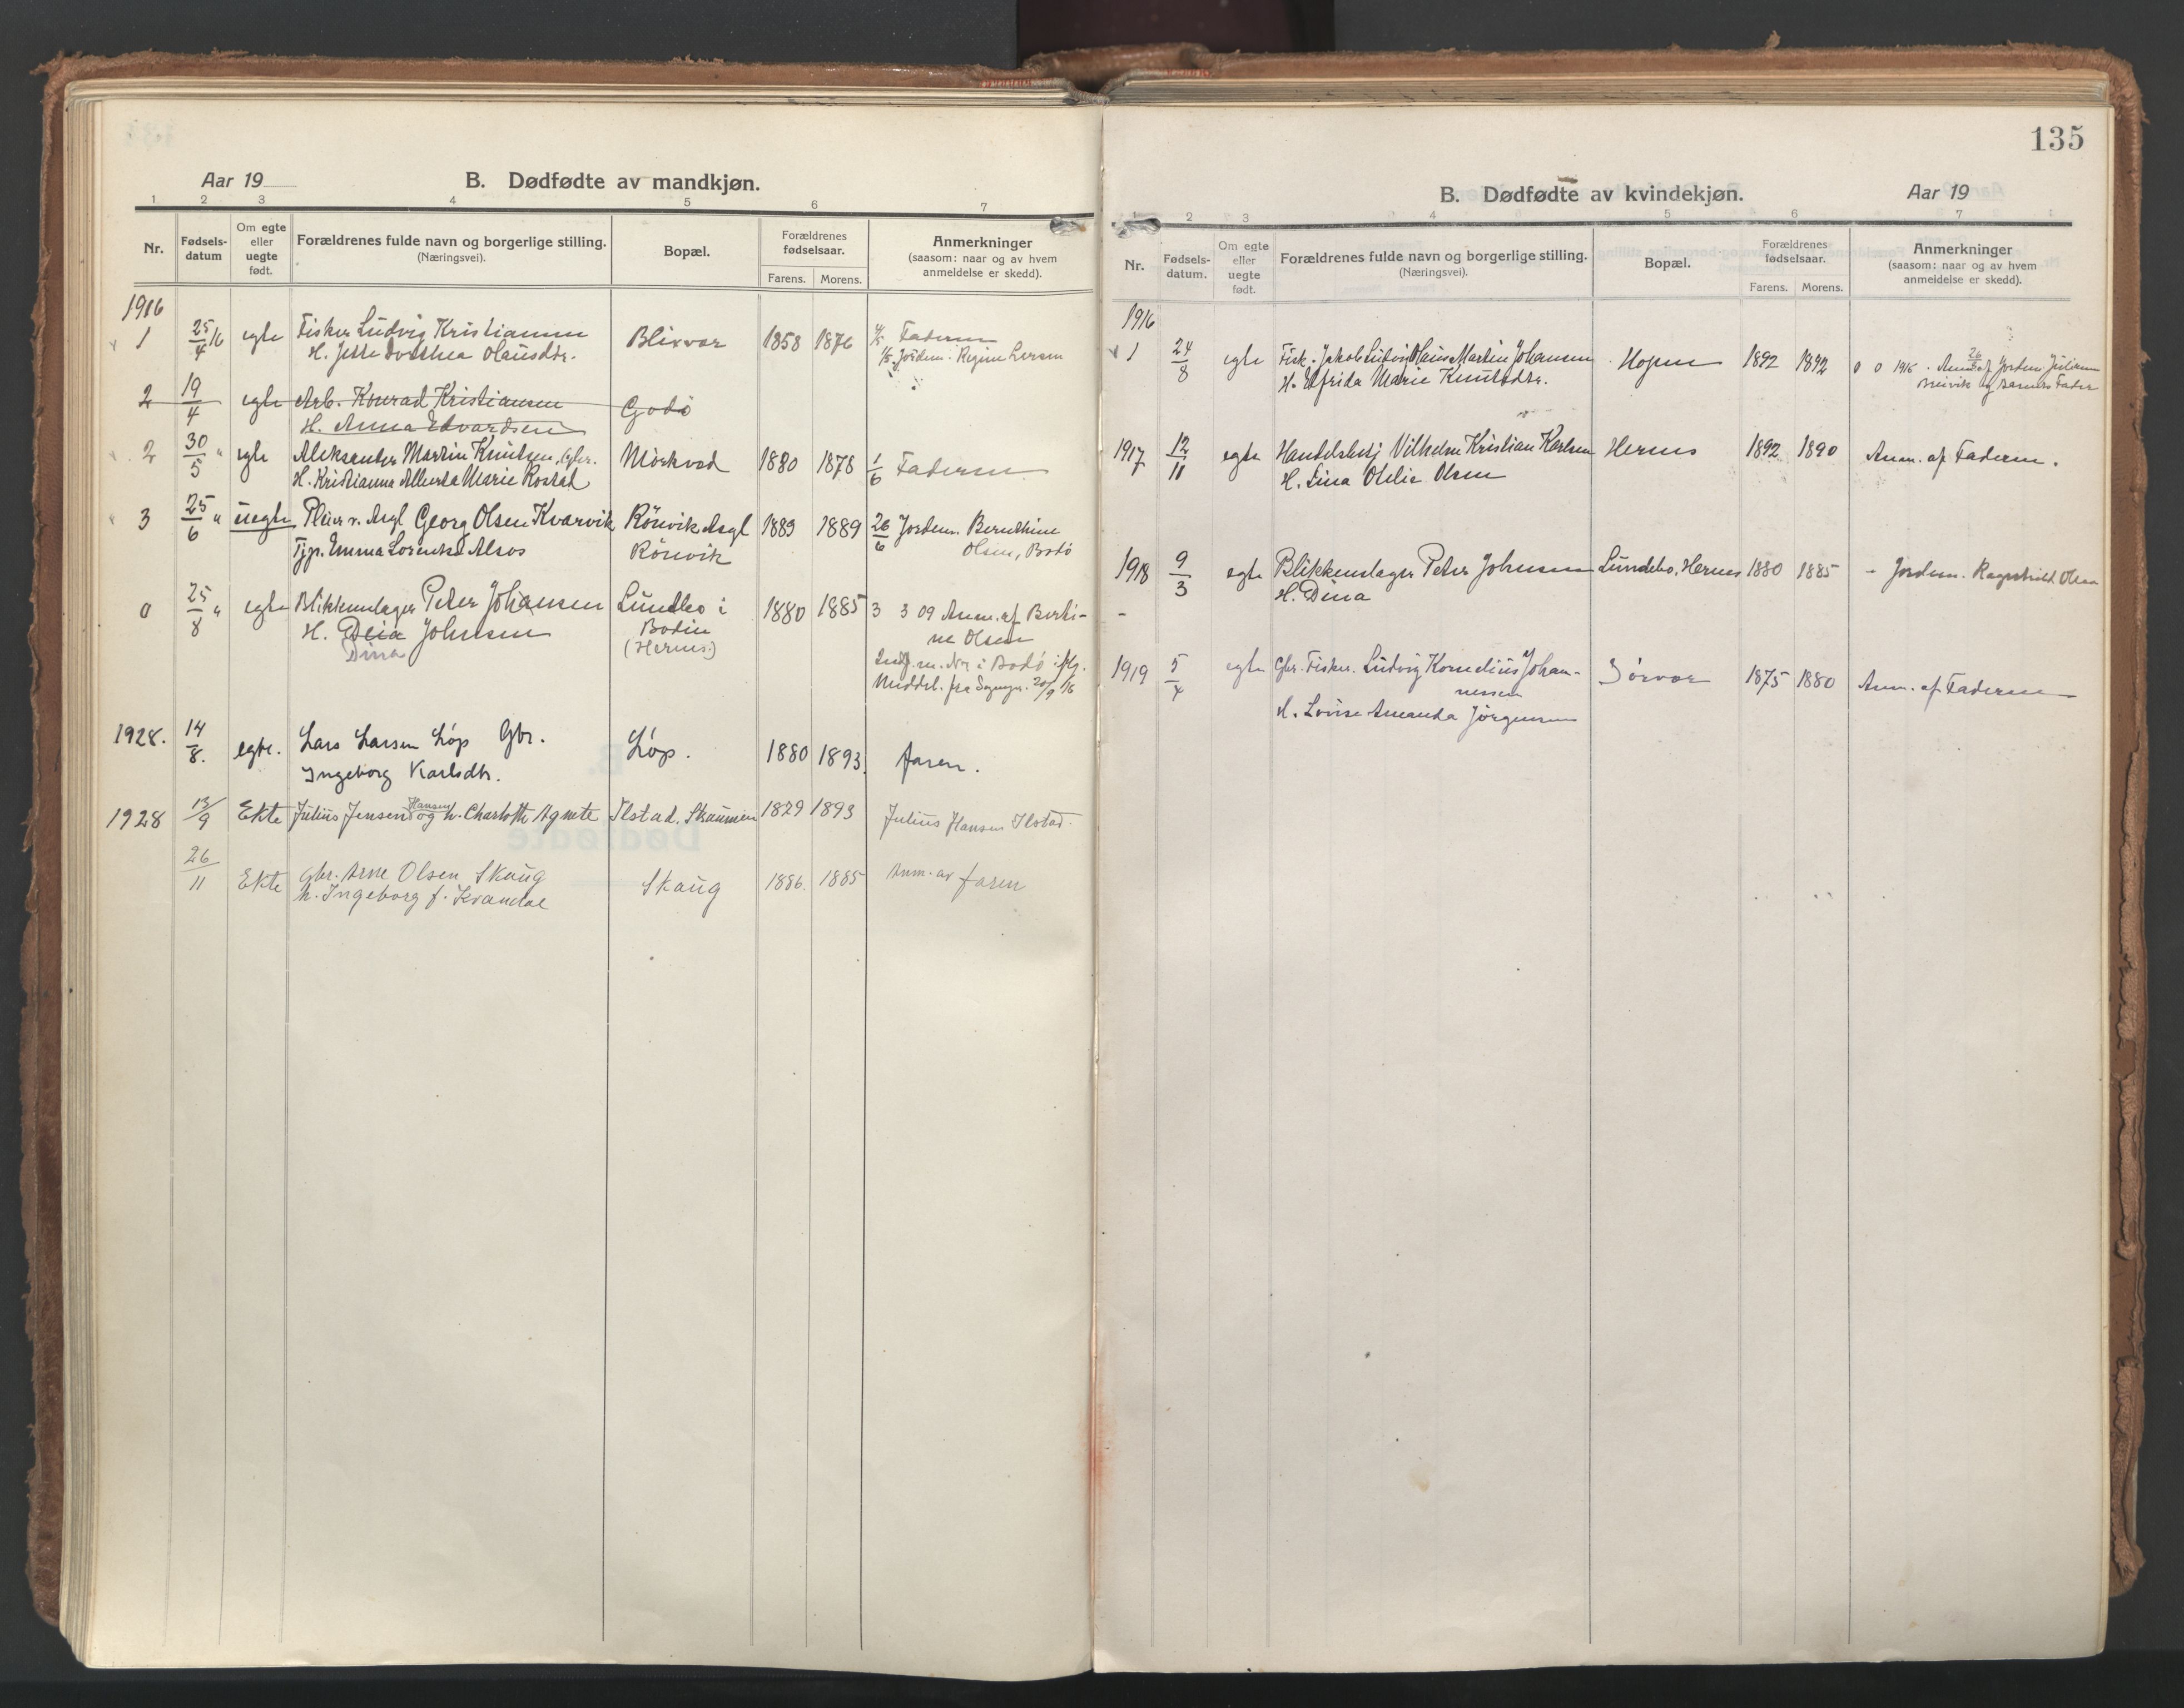 Aar 19
B. Dødfødte av mandkjøn.
1 2 3 4 5 6 7
Nr.
Fødsels-
datum
Om egte
eller
uegte
født.
Forældrenes fulde navn og borgerlige stilling.
(Næringsvei).
Bopæl.
Forældrenes
fødselsaar.
Farens. Morens.
Anmerkninger
(saasom: naar og av hvem
anmeldelse er skedd).
1916
1 25/4 16 egte Fisker Ludvig Kristiansen Blixvær 1858 1876 4/5 Faderen
H. Dorthea Olausdtr. Jordem. Regine
2 19/4 egte Arb. Konrad Kristiansen Godö
H. Anna Edvardsen
2 30/5 " egte Aleksander Martin Knutsen, Gbr. Mörkved 1880 1878 1/6 Faderen
H. Kristianna Alberta Marie Rostad
3 25/6 " uegte Pleier v. Asyl Georg Olsen Kvarvik Rönvik Asyl 1889 1889 26/6 Jordem. Bernthine
Tjp. Emma Lorentse Alsos Rönvik Olsen, Bodö
0 25/8 " egte Blikkenslager Peter Johansen Lundbo i 1880 1885 3 3 09 Anm. af Berti-
H. Deia Johnsen Bodin ne Olsen
Dina (Hernes) Indf. m. Nr i Bodö
Middel. fra Sognepr. 20/9 16
1928. 14/8. egte. Lars Larsen Löp Gbr. Löp. 1880 1893. faren.
Ingeborg Karlsdtr.
Hansen
1928 13/9 Ekte Julius Jensen og h. Charlotte Agnete Ilstad, Skaumen 1879 1893 Julius Hansen Ilstad.
26/11 Ekte Gbr. Arne Olsen Skaug Skaug 1886. 1885 Anm. av faren
h. Ingeborg f. Kvandal
135
B. Dødfødte av kvindekjøn.
Aar 19
1 2 3 4 5 6 7
Nr.
Fødsels-
datum.
Om egte
eller
uegte
født.
Forældrenes fulde navn og borgerlige stilling.
(Næringsvei).
Bopæl.
Forældrenes
fødselsaar.
Farens. Morens.
Anmerkninger
(saasom: naar og av hvem
anmeldelse er skedd).
1916
1 24/8 egte Fisk. Jakob Ludvig Hans Martin Johansen Hopen 1892 1892 0 0 1916 26/8 Anm. af Jordem. Juliane
H. Elfrida Marie Knutsdtr. og Barnets Fader
1917 12/11 egte Handelsbetj Vilhelm Kristian Karlsen Hernes 1892 1890 Anm. af Faderen.
H. Lina Otelie Olsen
1918 9/3 egte Blikkenslager Peter Johnsen Lundebo, Hernes 1880 1885 - Jordem. Ragnhild Olsen
H. Dina
-
1919 5/4 egte Gbr. Fisker. Ludvig Kornelius Johan- Sörvær 1875 1880 Anm. af Faderen
nessen
H. Lovise Amanda Jörgensen